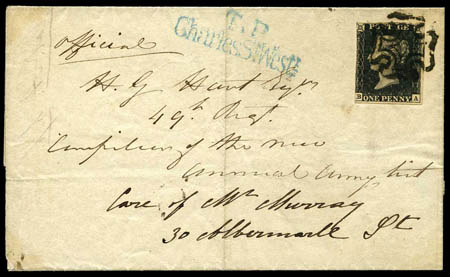 T.P
Charles St West
official
POSTAGE
B A
ONE PENNY
H. G Hart Esqr
49th Regt.
Compiler of the new
Annual Army List
Care of Mr Murray
30 Albermarle St